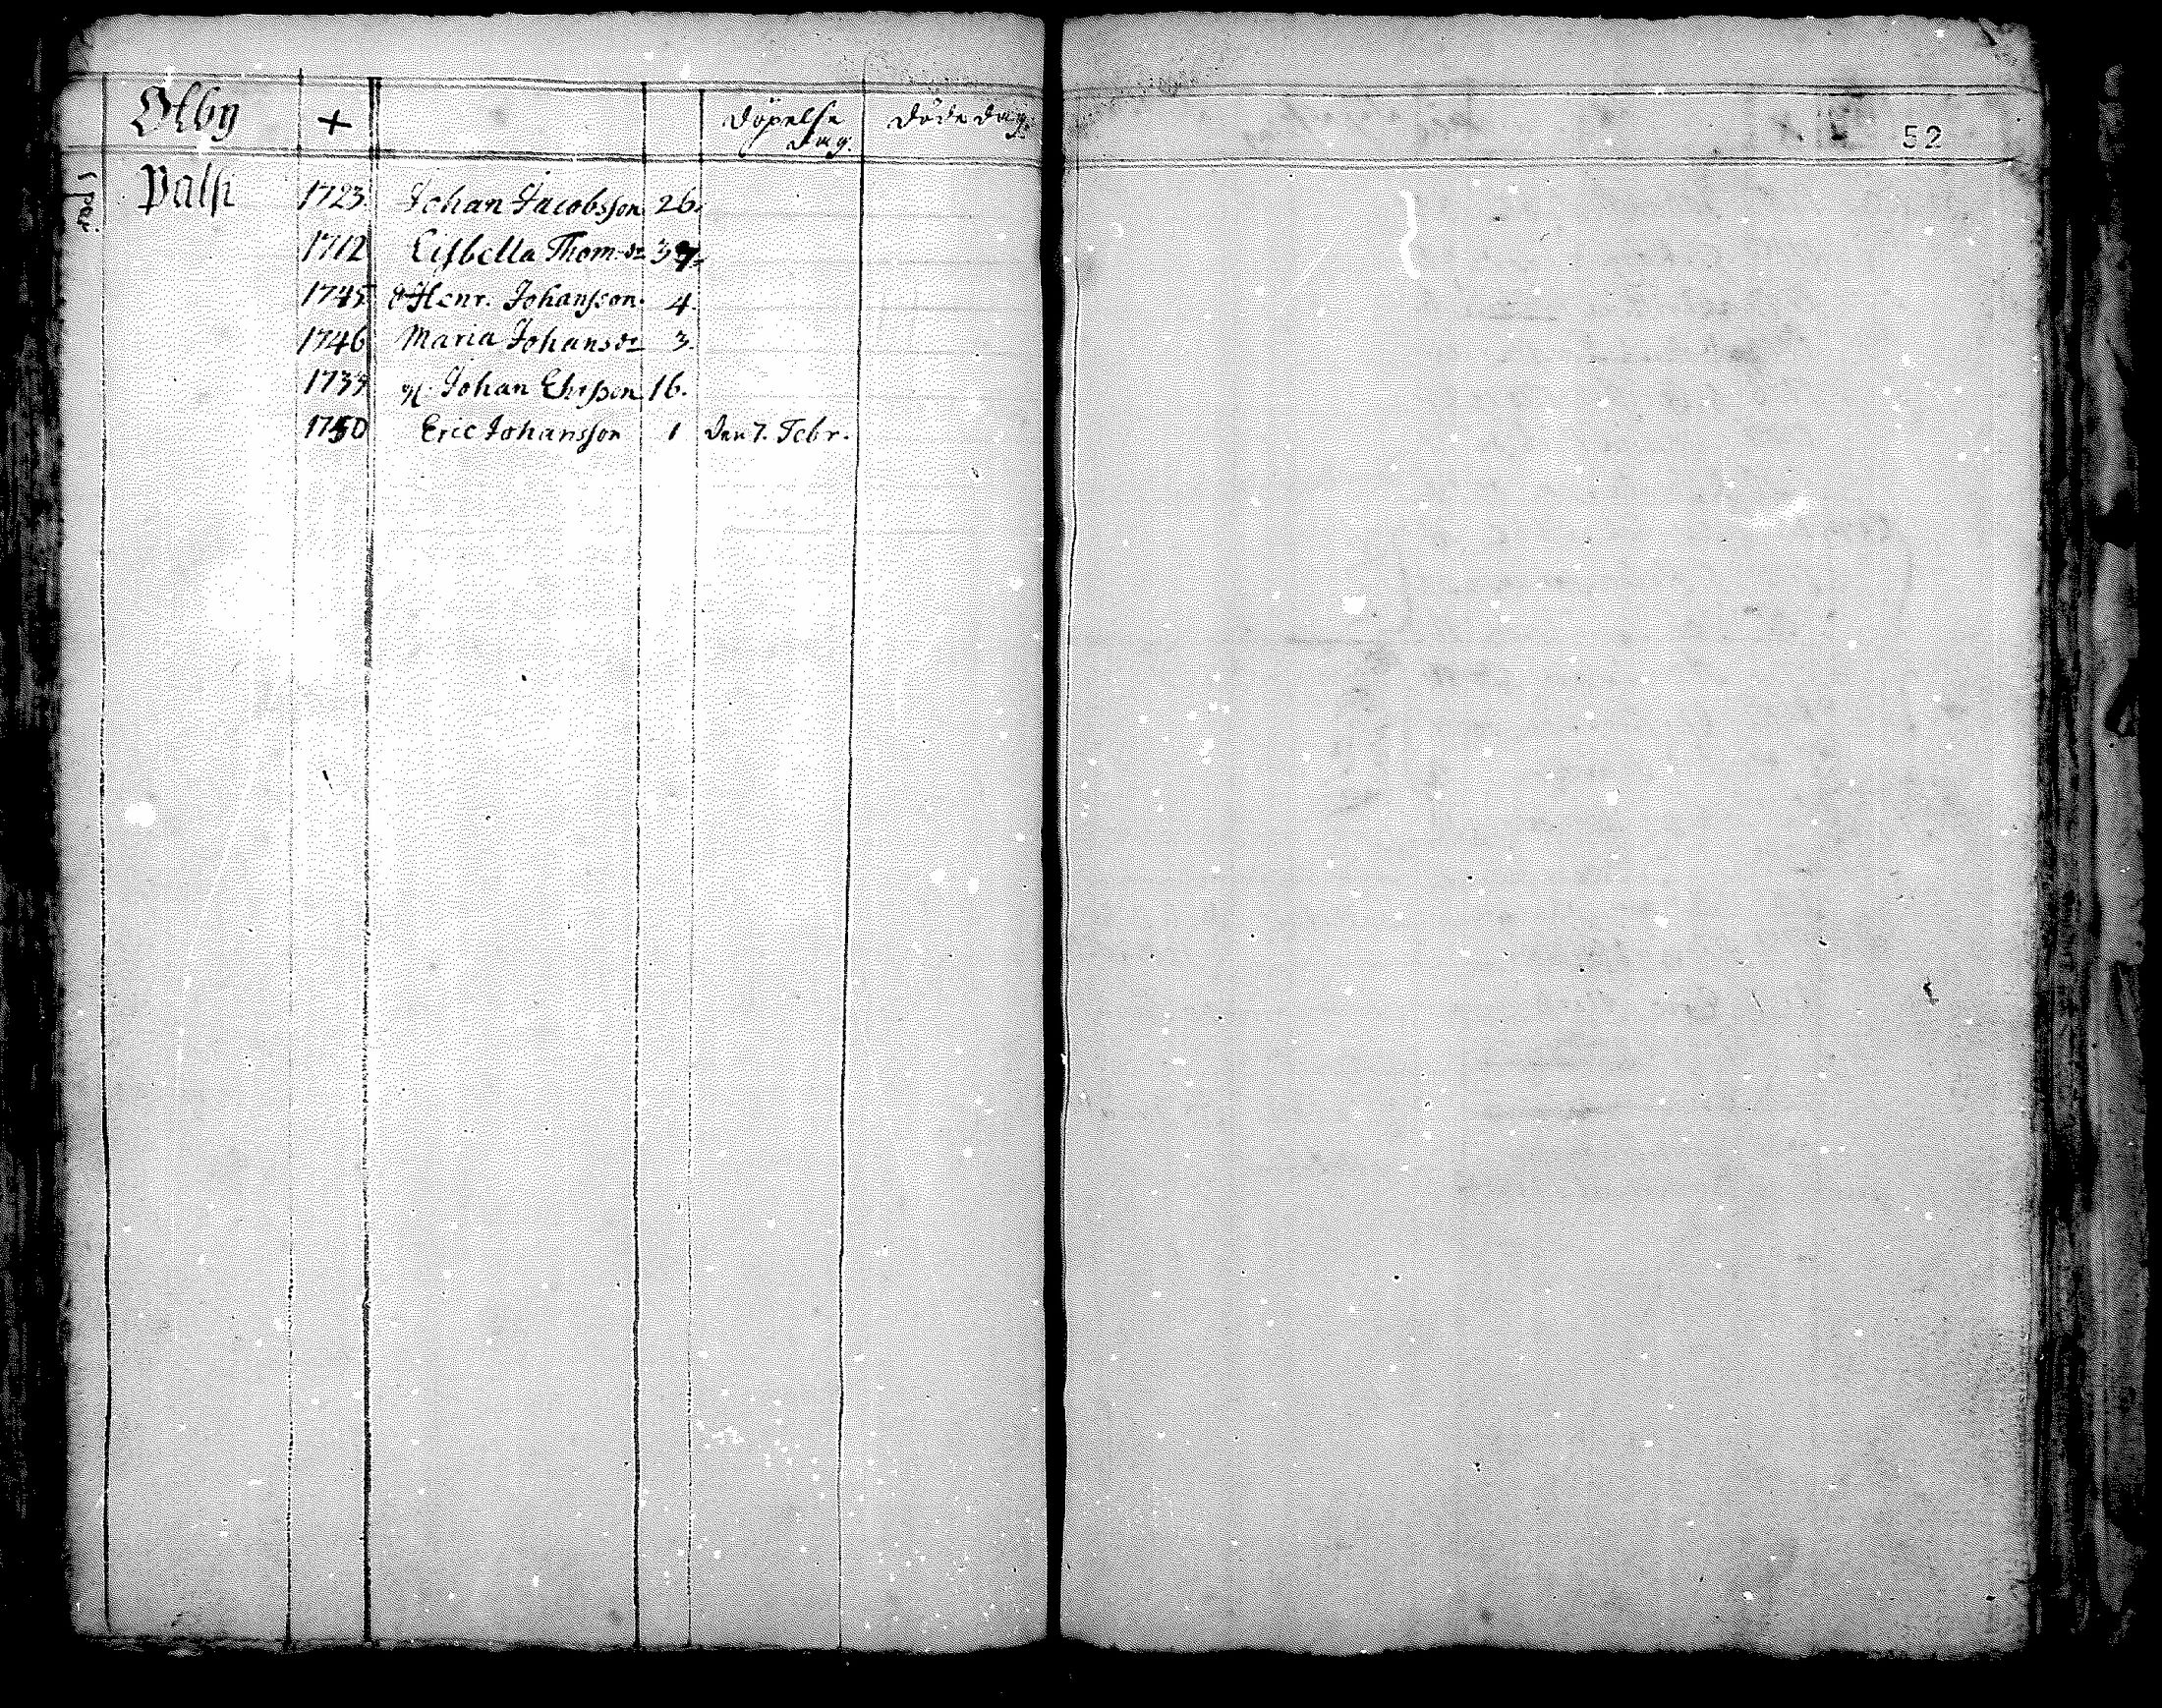 Ölby + Döpelse dag. Döde dag.
52
Palsi 1723. Johan Jacobsson 26.
1712 Lisbella Thom. dr 37.
1745 Henr. Johansson. 4.
1746 Maria Johans dr 3.
1733. Johan Ehrsson 16.
1750 Eric Johansson 1 den 7. Febr.